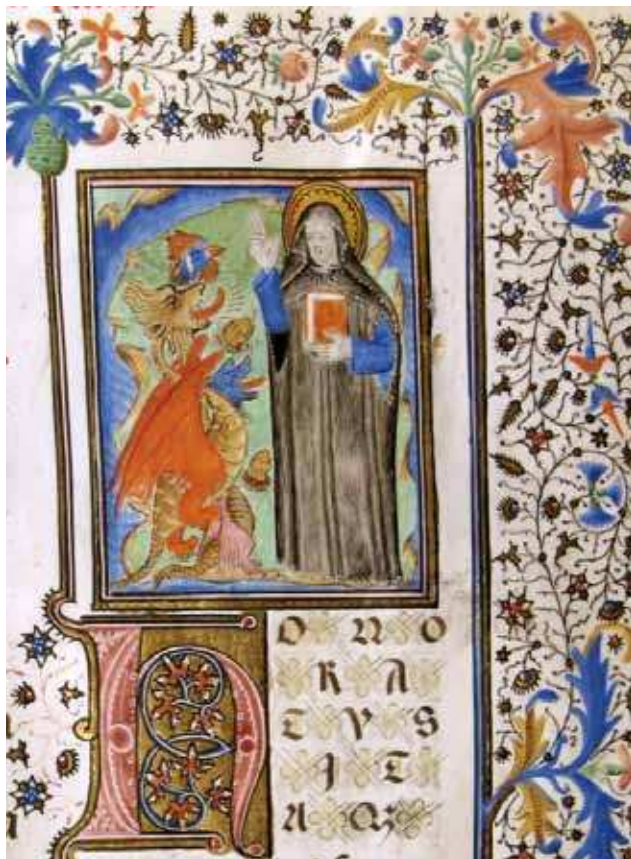 HONO
RA
TVS
IT
AQ